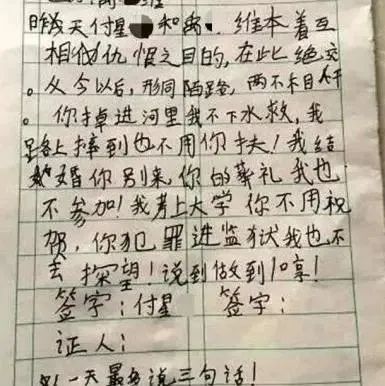 昨天付星 和禹 维本着互
相仇恨之目的,在此绝交
。从今以后,形同陌路,两不相欠
。你掉进河里我不下水救,我
路上摔到也不用你扶!我结
婚你别来,你的葬礼我也
不参加!我考上大学你不用祝
贺,你犯罪进监狱我也不
去探望!说到做到!哼!
签字:付星 签字:
证人:
一天最多说三句话!